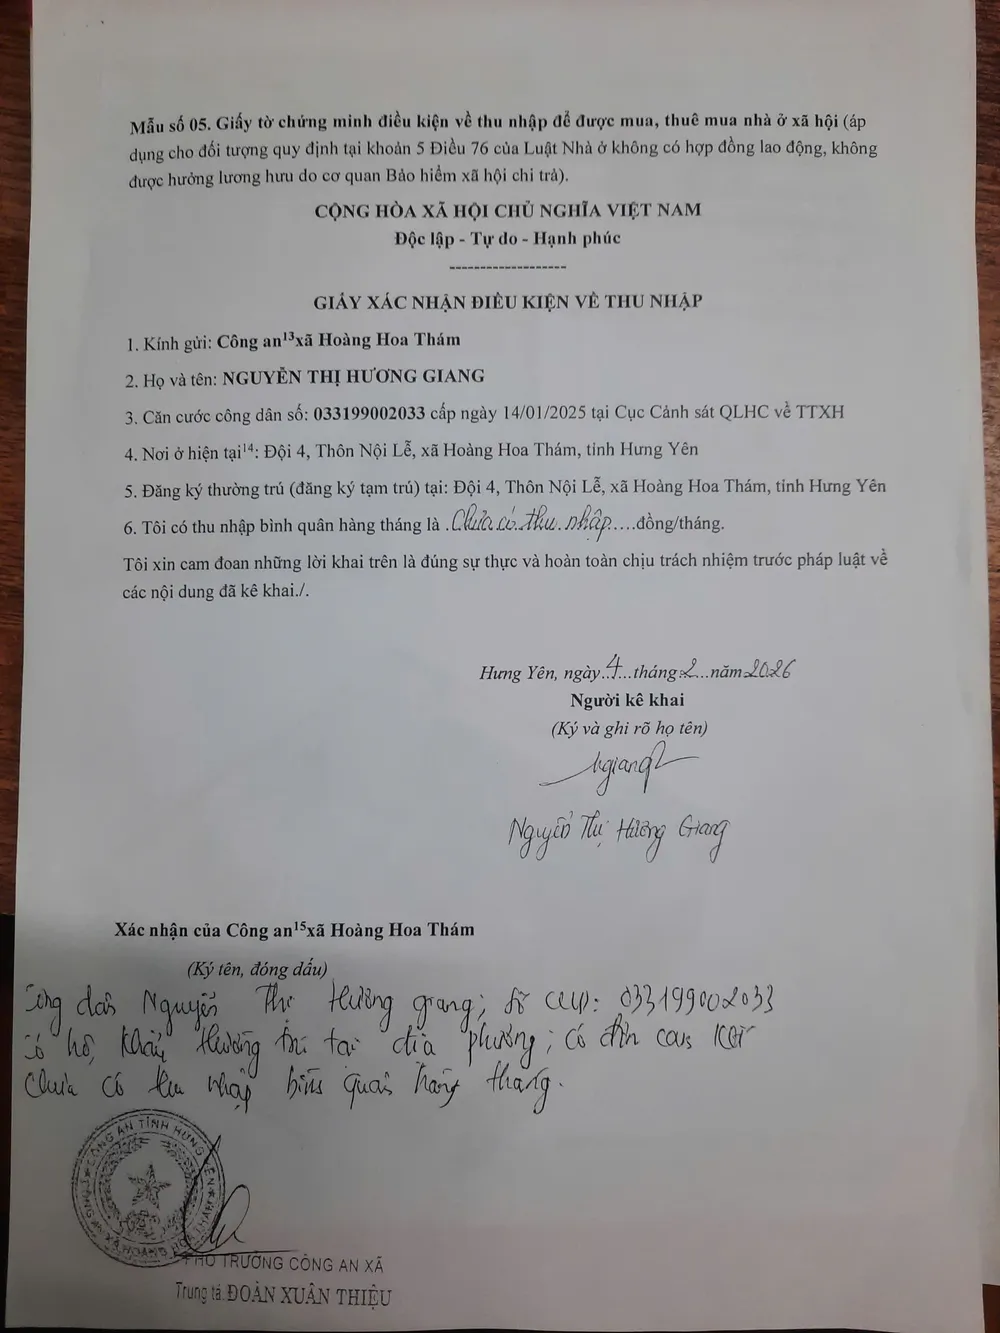 Mẫu số 05. Giấy tờ chứng minh điều kiện về thu nhập để được mua, thuê mua nhà ở xã hội (áp
dụng cho đối tượng quy định tại khoản 5 Điều 76 của Luật Nhà ở không có hợp đồng lao động, không
được hưởng lương hưu do cơ quan Bảo hiểm xã hội chi trả).
CỘNG HÒA XÃ HỘI CHỦ NGHĨA VIỆT NAM
Độc lập - Tự do - Hạnh phúc
-------------------
GIẤY XÁC NHẬN ĐIỀU KIỆN VỀ THU NHẬP
1. Kính gửi: Công an¹³xã Hoàng Hoa Thám
2. Họ và tên: NGUYỄN THỊ HƯƠNG GIANG
3. Căn cước công dân số: 033199002033 cấp ngày 14/01/2025 tại Cục Cảnh sát QLHC về TTXH
4. Nơi ở hiện tại¹⁴: Đội 4, Thôn Nội Lễ, xã Hoàng Hoa Thám, tỉnh Hưng Yên
5. Đăng ký thường trú (đăng ký tạm trú) tại: Đội 4, Thôn Nội Lễ, xã Hoàng Hoa Thám, tỉnh Hưng Yên
6. Tôi có thu nhập bình quân hàng tháng là .Chưa có thu nhập.....đồng/tháng.
Tôi xin cam đoan những lời khai trên là đúng sự thực và hoàn toàn chịu trách nhiệm trước pháp luật về
các nội dung đã kê khai./.
Hưng Yên, ngày 4 tháng 2 năm 2026
Người kê khai
(Ký và ghi rõ họ tên)
Giang
Nguyễn Thị Hương Giang
Xác nhận của Công an¹⁵xã Hoàng Hoa Thám
(Ký tên, đóng dấu)
Công dân Nguyễn Thị Hương Giang; số CCCD: 033199002033
Có hộ khẩu thường trú tại địa phương; có đơn cam kết
Chưa có thu nhập bình quân hàng tháng.
CÔNG AN TỈNH HƯNG YÊN
CÔNG AN XÃ HOÀNG HOA THÁM
PHÓ TRƯỞNG CÔNG AN XÃ
Trung tá ĐOÀN XUÂN THIỆU